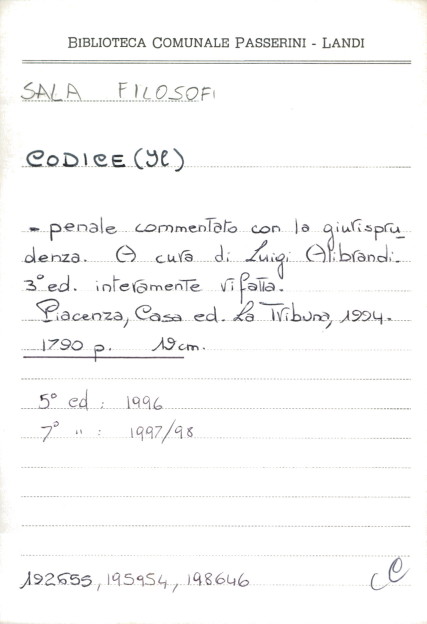 BIBLIOTECA COMUNALE PASSERINI - LANDI
SALA FILOSOFI
CODICE (Il)
- penale commentato con la giurispru_
denza. A cura di Luigi Alibrandi.
3° ed. interamente rifatta.
Piacenza, Casa ed. La Tribuna, 1994.
1790 p. 19 cm.
5° ed : 1996
7° " : 1997/98
192655, 195954, 198646